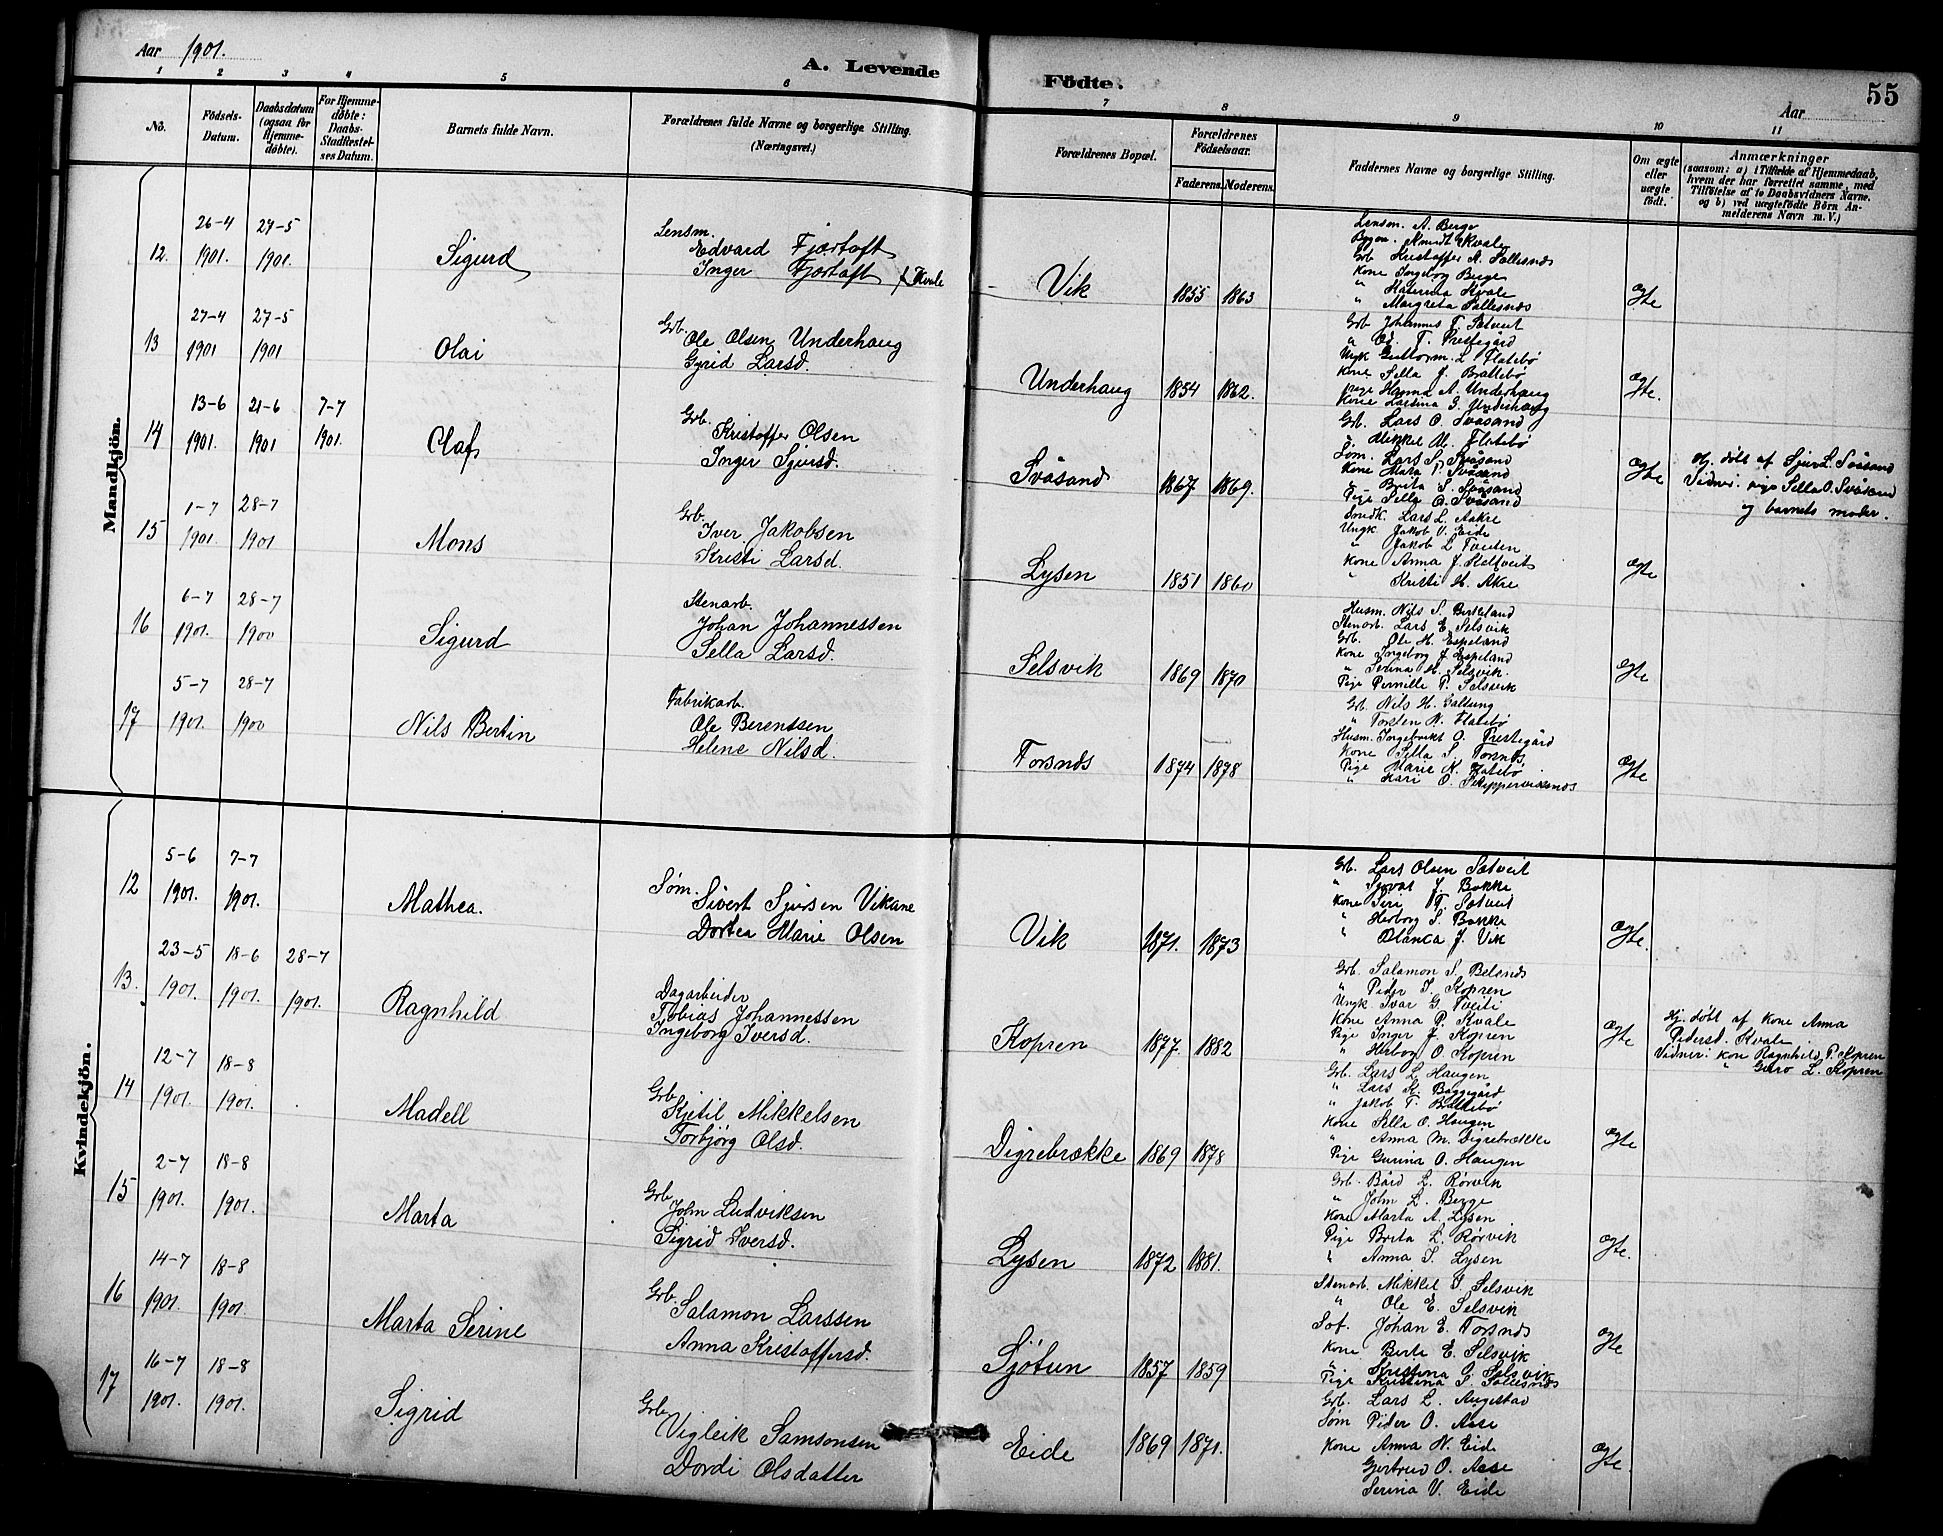 Aar 1901.
A. Levende Födte.
55
Aar
1 2 3 4 5 6 7 8 9 10 11
No.
Födsels-
Datum.
Daabsdatum
(ogsaa for
Hjemme-
döbte).
For Hjemme-
döbte:
Daabs-
Stadfestel-
ses Datum.
Barnets fulde Navn.
Forældrenes fulde Navne og borgerlige Stilling.
(Næringsvei.)
Forældrenes Bopæl.
Forældrenes
Födselsaar.
Faderens.
Moderens.
Faddernes Navne og borgerlige Stilling.
Om ægte
eller
uægte
födt.
Anmærkninger
(saasom: a) i Tilfælde af Hjemmedaab,
hvem der har forrettet samme, med
Tilföielse af to Daabsvidners Navne.
og b) ved uægtefödte Börn An-
melderens Navn m. V.)
Mandkjön.
12.
26-4
1901.
27-5
1901.
Sigurd
Lensm.
Edvard Fjærtoft
Inger Fjærtoft f. Kvale
Vik
1855
1863
Lensm. A. Berge
Knudt Kvale
Grb Kristoffer A. Sollesnes
Kone Ingeborg Berge
" Katerina Kvale
" Margreta Sollesnes
Ægte
13
27-4
1901
27-5
1901
Olai
Grb.
Ole Olsen Underhaug
Gyrid Larsd.
Underhaug
1854
1862.
Grb Johannes T. Sætveit
" T. Prestegård
Ungk Guttorm L. Flatebø
Kone Sella J. Brattebø
Pige Hanna A. Underhaug
Kone Larsina G. Underhaug
Ægte.
14
13-6
1901
21-6
1901
7-7
1901.
Olaf
Grb.
Kristoffer Olsen
Inger Sjursd.
Svåsand
1867
1869.
Grb. Lars O. Svåsand
" Mikkel M. Flatebø
Søm. Lars S. Svåsand
Kone Marta P. Svåsand
" Brita S. Svåsand
Pige Sella O. Svåsand
Ægte
Hj. døbt af Sjur L. Svåsand
Vidner: pige Sella O. Svåsand
og barnets moder.
15
1-7
1901
28-7
1901
Mons
Grb.
Iver Jakobsen
Kristi Larsd.
Lysen
1851
1860
Snedk. Lars L. Aakre
Ungk Jakob O. Eide
" Jakob L. Tveiten
Kone Anna J. Haltveit
" Kristi H. Akre
Ægte
16
6-7
1901.
28-7
1900
Sigurd
Stenarb.
Johan Johannessen
Sella Larsd.
Selsvik
1869
1870
Husm. Nils S. Birkeland
Stenarb. Lars E. Selsvik
Grb. Ole H. Espeland
Kone Ingeborg J. Espeland
" Serina H. Selsvik.
Pige Pernille P. Selsvik
Ægte
17
5-7
1901.
28-7
1900
Nils Bertin
Fabrikarb.
Ole Berentsen
Helene Nilsd.
Torsnes
1874
1878
Grb. Nils H. Galtung
" Torsten N. Flatebø
Husm. Ingebrikt O. Prestegård
Kone Sella S. Torsnes
Pige Marie K. Flatebø
" Kari O. Skippervissnes
Ægte
Kvindekjön.
12
5-6
1901.
7-7
1901.
Mathea.
Søm.
Sivert Sjursen Vikane
Dortea Marie Olsen
Vik
1871.
1873
Grb. Lars Olsen Sætveit
" Syvat J. Bakke
Kone Siri T. Sætveit
" Herborg S. Bakke
" Blanca J. Vik
Ægte.
13.
23-5
1901.
18-6
1901.
28-7
1901.
Ragnhild
Dagarbeider
Tobias Johannessen
Ingeborg Iversd.
Kopren
1877.
1882
Grb. Salamon S. Belsnes
" Peder I. Kopren
Ungk Ivar G. Tveiti
Kone Anna P. Kvale
Pige Inger J. Kopren
" Herborg O. Kopren
Ægte
Hj. døbt af kone Anna
Pedersd. Kvale
Vidner: kone Ragnhild P. Kopren
" Guro L. Kopren
14
12-7
1901.
18-8
1901.
Madell
Grb.
Kjetil Mikkelsen
Torbjørg Olsd.
Digrebrække
1869
1878
Grb. Lars L. Haugen
" Lars K. Baggegård
" Jakob T. Brattebø
Kone Sella O. Haugen
" Anna M. Digrebrække
Pige Gurina O. Haugen
Ægte
15
2-7
1901.
18-8
1901.
Marta
Grb.
John Ludviksen
Sigrid Iversd.
Lysen
1872
1881.
Grb. Bård L. Rørvik
" John L. Berge
Kone Marta A. Lysen
Pige Brita L. Rørvik
" Anna I. Lysen
Ægte.
16
14-7
1901.
18-8
1901.
Marta Serine
Grb.
Salamon Larssen
Anna Kristoffersd.
Sjøtun
1857
1859
Stenarb. Mikkel I. Selsvik
" Ole E. Selsvik
Sof. Johan E. Torsnes
Kone Berte E. Selsvik
" Kristina O. Selsvik
Pige Kristina S. Sollesnes
Ægte
17
16-7
1901.
18-8
1901.
Sigrid
Grb.
Vigleik Samsonsen
Dordi Olsdatter
Eide
1869
1871.
Grb. Lars L. Augestad
Søm Peder O. Aase
Kone Anna N. Eide
Gjertrud O. Aase
Serina V. Eide
Ægte.